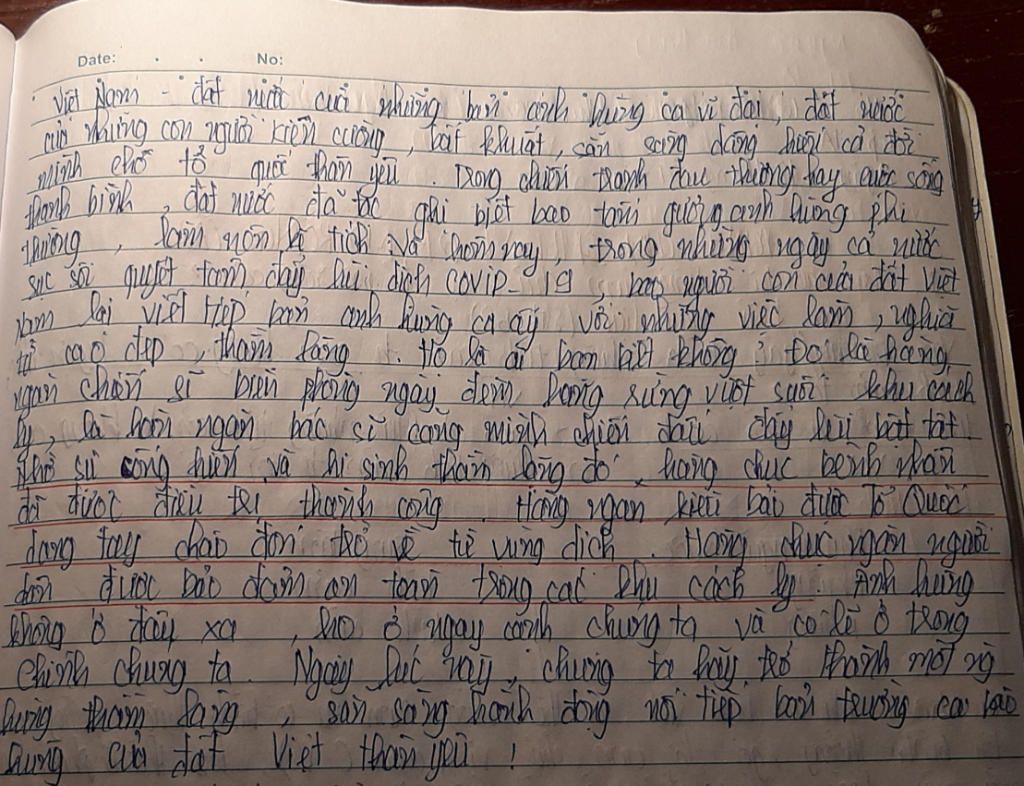 Date: . . No:
Việt Nam - đất nước của những bản anh hùng ca vĩ đại, đất nước
của những con người kiên cường, bất khuất, sẵn sàng dâng hiến cả đời
mình cho tổ quốc thân yêu. Trong chiến tranh đau thương hay cuộc sống
thanh bình, đất nước đã tạc ghi biết bao tấm gương anh hùng phi
thường, làm nên kì tích và hôm nay, trong những ngày cả nước
sục sôi quyết tâm đẩy lùi dịch COVID-19, bao người con của đất Việt
Nam lại viết tiếp bản anh hùng ca ấy với những việc làm, nghĩa
tử cao đẹp, thầm lặng. Họ là ai bạn biết không? Đó là hàng
ngàn chiến sĩ biên phòng ngày đêm băng rừng vượt suối khu cách
ly, là hàn ngàn bác sĩ căng mình chiến đấu đẩy lùi bệt tật.
Nhờ sự cống hiến và hi sinh thầm lặng đó, hàng chục bệnh nhân
đã được điều trị thành công. Hàng ngàn kiều bào được Tổ Quốc
dang tay chào đón trở về từ vùng dịch. Hàng chục ngàn người
dân được bảo đảm an toàn trong các khu cách ly. Anh hùng
không ở đâu xa, họ ở ngay cạnh chúng ta và có lẽ ở trong
chính chúng ta. Ngay lúc này, chúng ta hãy trở thành một
hùng thầm lặng, sẵn sàng hành động nối tiếp bản trường ca hào
hùng của đất Việt thân yêu!